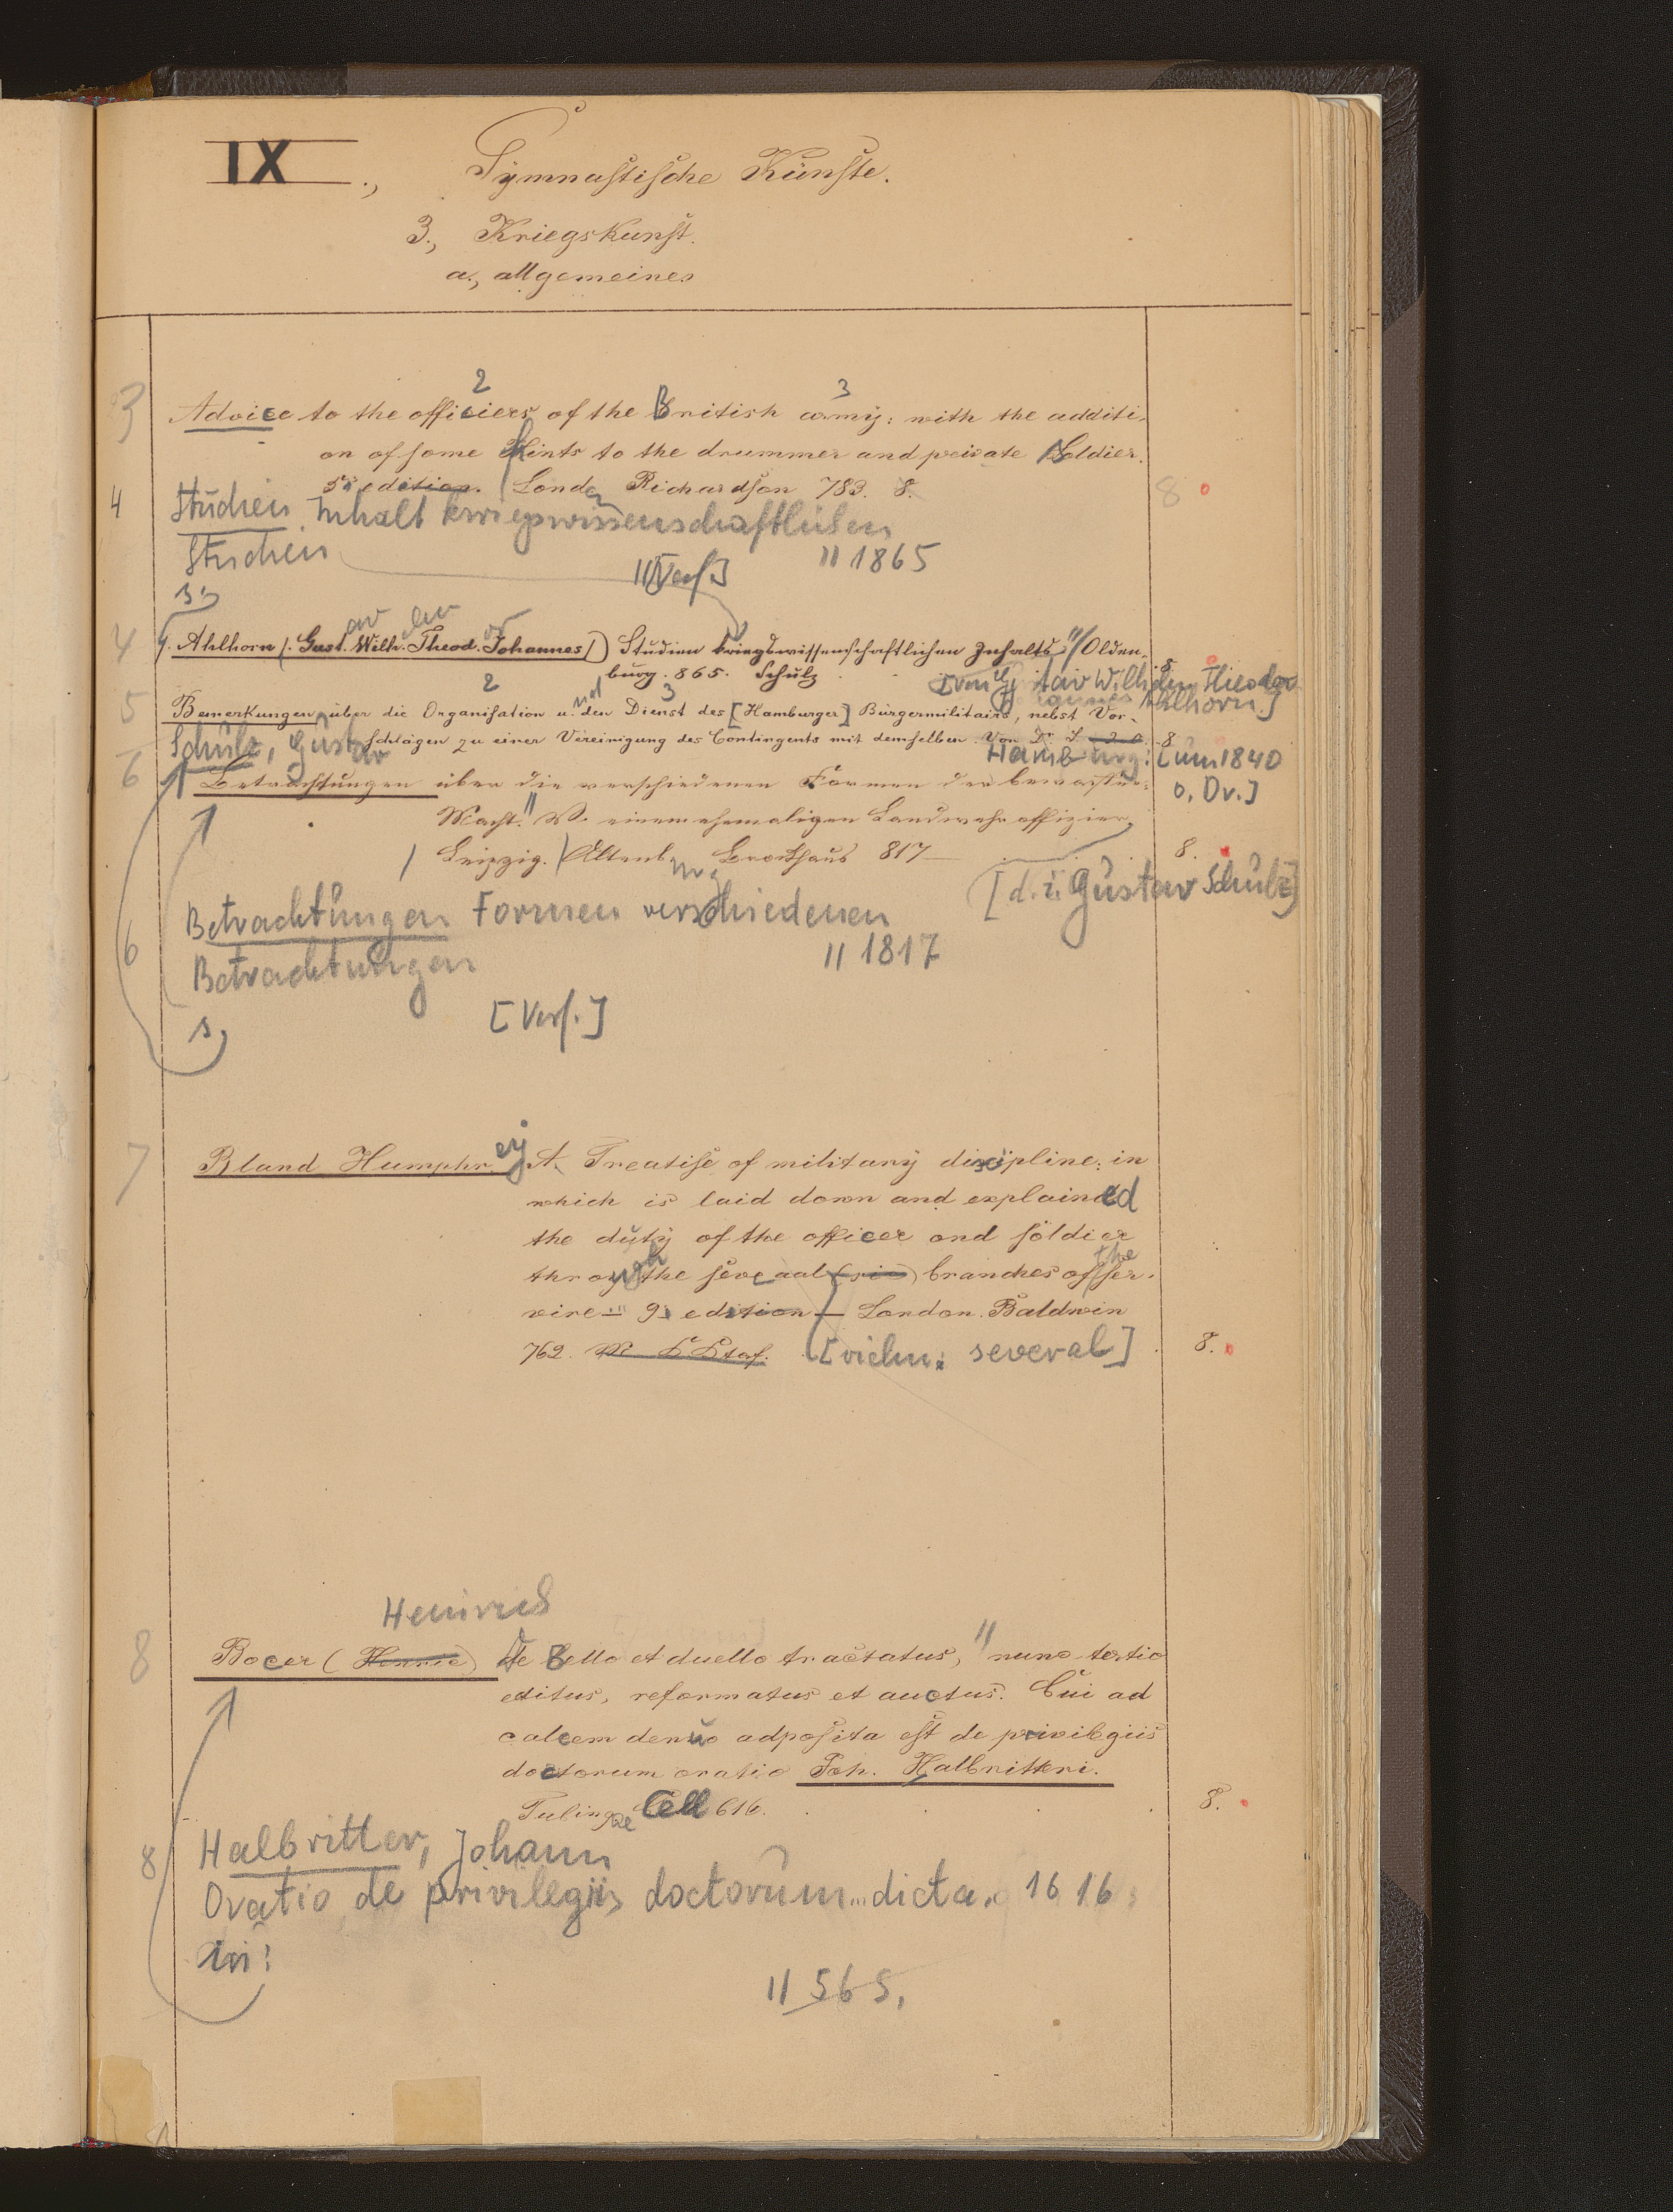 IX., Gymnastische Künste.
3., Kriegskunst.
a., allgemeines
3 Advice to the officiers of the British army: with the additi-
2 3
on of some Hints to the drummer and private Soldier.
5 edition. London Richardson 783. 8. 8
4 Studien Inhalt kriegswissenschaftlichen
Studien || 1865
|| [Verf.]
s.
4 4. Ahlhorn (. Gustav. Wilh. Theodor. Johannes) Studien kriegswissenschaftlichen Inhalts || Olden-
burg. 865. Schulz 8
[von Gustav Wilhelm Theodor
Johannes Ahlhorn.]
2 3
5 Bemerkungen über die Organisation und den Dienst des [Hamburger] Bürgermilitairs, nebst Vor-
schlägen zu einer Vereinigung des Contingents mit demselben. Von Dr. 8
Schulz, Gustav
Hamburg: [um 1840
o. Dr.]
6 Betrachtungen über die verschiedenen Formen der bewaffne-
Macht. || V. einem ehemaligen Landwehroffizier
Leipzig. Altenburg Brockhaus 817 8.
[d. i. Gustav Schulz]
Betrachtungen Formen verschiedenen
6 Betrachtungen || 1817
s. [Verf.]
7 Bland Humphrey A. Treatise of military discipline: in
which is laid down and explained
the duty of the officer and soldier
through the several (sic) branches of the ser-
vice 9 edition — London. Baldwin
762. [vielm: several] 8.
Heinrich
8 Bocer (Henric) De Bello et duello tractatus, || nunc tertio
editus, reformatus et auctus. Cui ad
calcem denuo adposita est de privilegiis
doctorum oratio Joh. Halbritteri.
Tubingae Cell 616. 8.
8 Halbritter, Johann
Oratio de privilegiis doctorum ... dicta. 1616
in:
|| 565.